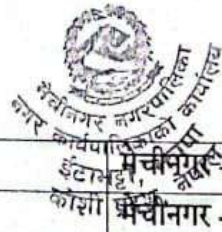 मेचीनगर नगरपालिका
नगर कार्यपालिकाको कार्यालय
ईटाभट्टा, झापा
कोशी प्रदेश, नेपाल
मेचीनगर -
मेचीनगर -